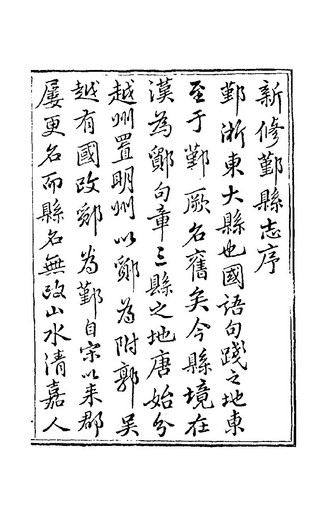 新修鄞縣志序
鄞浙東大縣也國語句踐之地東
至于鄞厥名舊矣今縣境在
漢為鄮句章三縣之地唐始分
越州置明州以鄮為附郭吴
越有國改鄮為鄞自宋以来郡
屡更名而縣名無改山水清嘉人